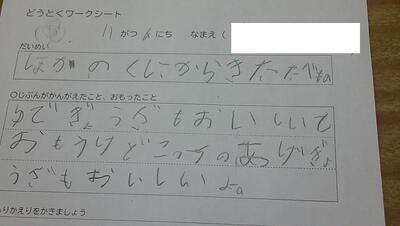 どうとくワークシート
11がつ にち なまえ（
だいめい
ほかのくにからきたたべもの
○じぶんがかんがえたこと、おもったこと
ゆでぎょうざもおいしいて
おもうけどこっちのあげぎょ
うざもおいしいよ。
りかえりをかきましょう